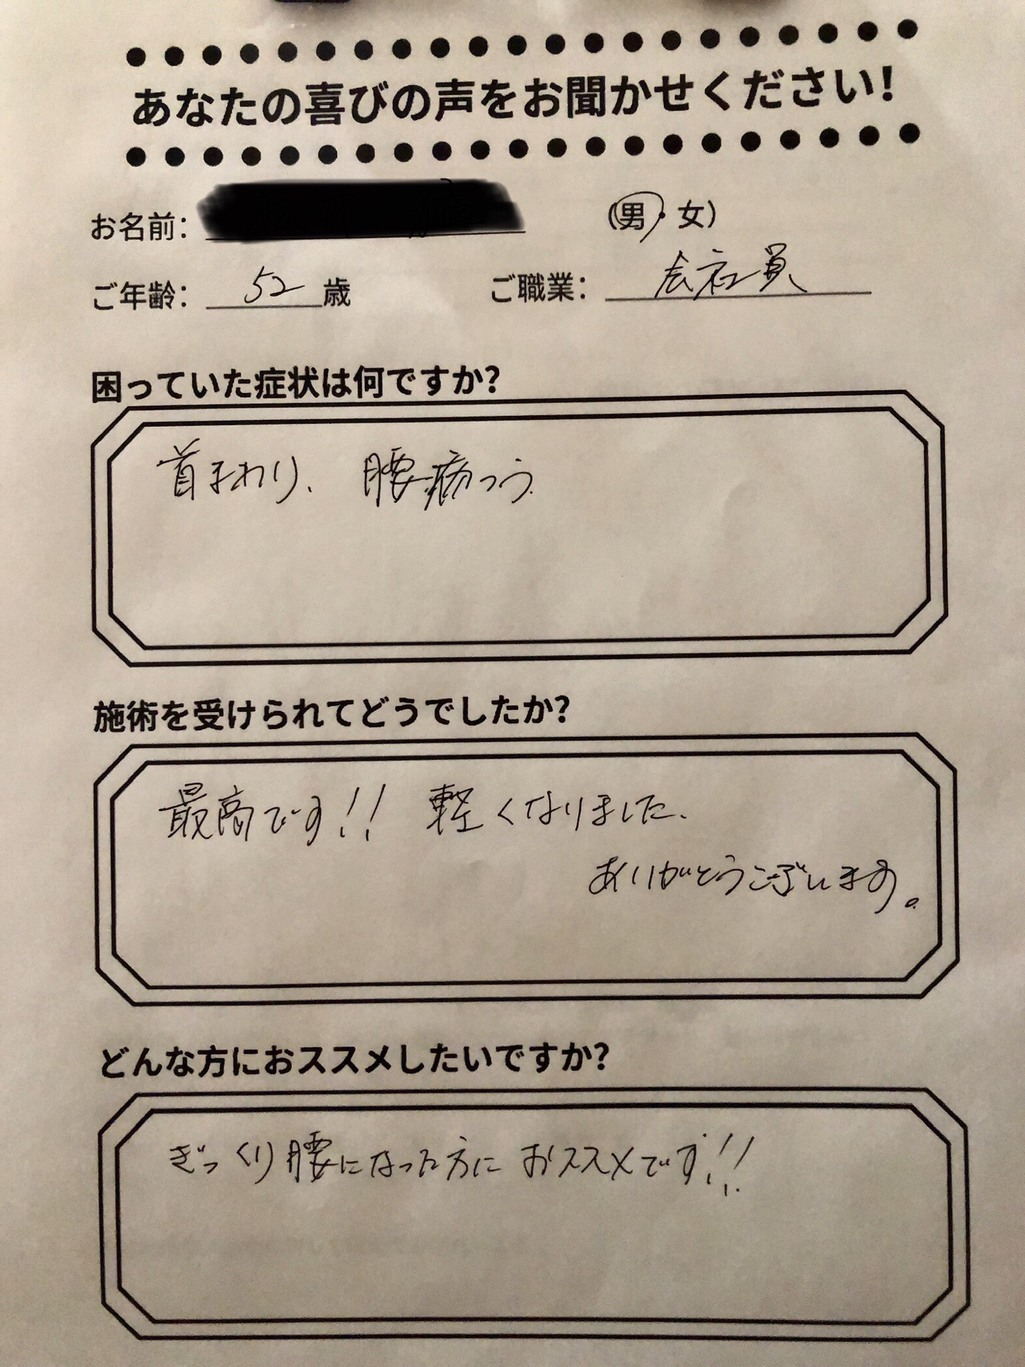 あなたの喜びの声をお聞かせください!
お名前: (男・女)
ご年齢: 52 歳 ご職業: 会社員
困っていた症状は何ですか?
首まわり、腰痛
施術を受けられてどうでしたか?
最高です!! 軽くなりました、
ありがとうございます。
どんな方におススメしたいですか?
ぎっくり腰になった方に おススメです!!